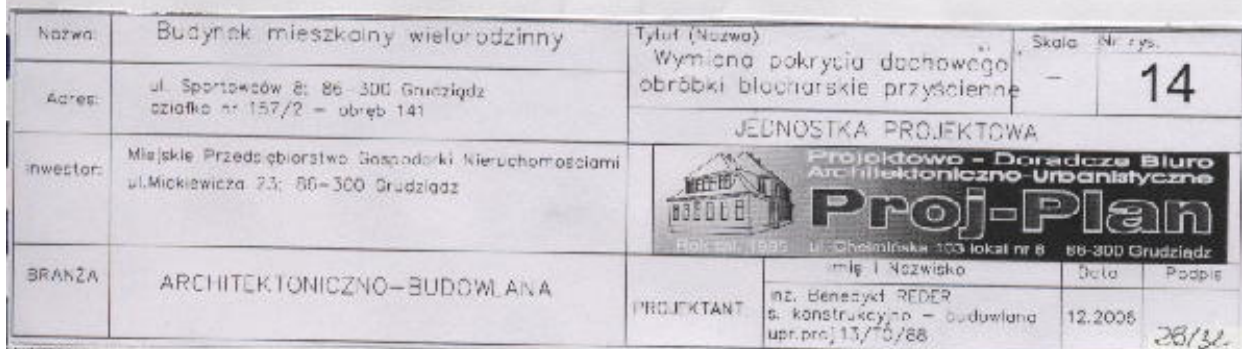 Nazwa:
Budynek mieszkalny wielorodzinny
Adres:
ul. Sportowców 8; 86-300 Grudziądz
działka nr 157/2 - obręb 141
Inwestor:
Miejskie Przedsiębiorstwo Gospodarki Nieruchomościami
ul.Mickiewicza 23; 86-300 Grudziądz
BRANŻA
ARCHITEKTONICZNO-BUDOWLANA
Tytuł (Nazwa)
Wymiana pokrycia dachowego
obróbki blacharskie przyścienne
Skala
-
Nr rys.
14
JEDNOSTKA PROJEKTOWA
Projektowo - Doradcze Biuro
Architektoniczno-Urbanistyczne
Proj-Plan
Rok zał. 1995 ul. Chełmińska 103 lokal nr 8 86-300 Grudziądz
Imię i Nazwisko
Data
Podpis
PROJEKTANT
inż. Benedykt REDER
s. konstrukcyjno - budowlana
upr.proj 13/TO/88
12.2006
28/32